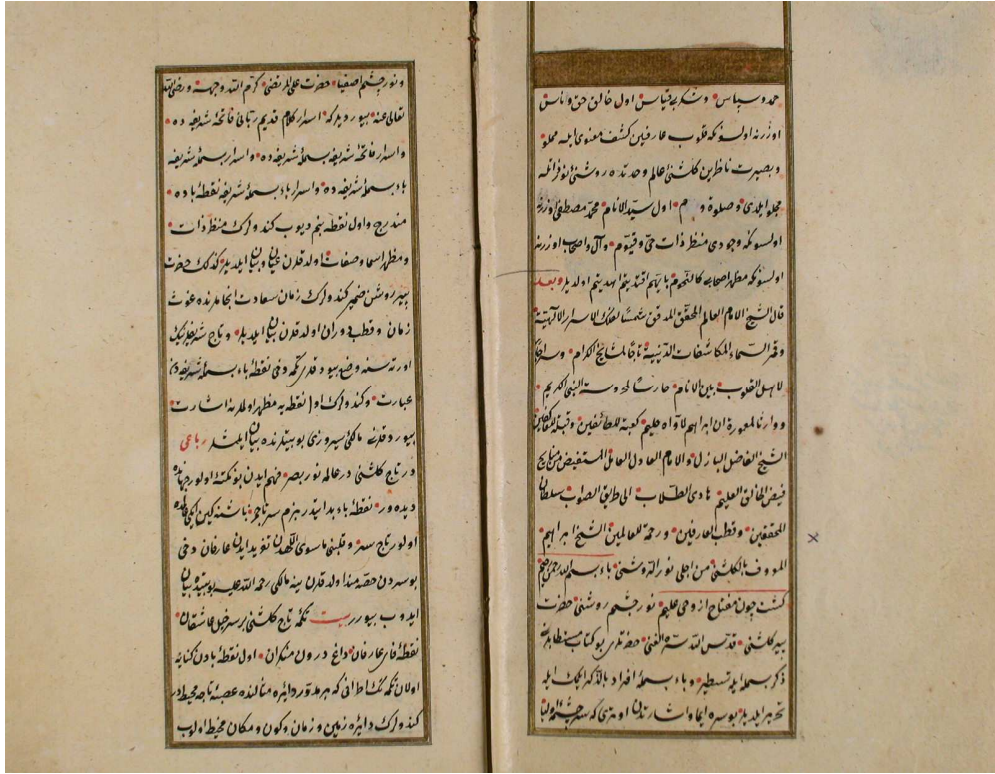 حمد و سپاس و شکر بی قیاس اول خالق جن و ناس
اوزرنه اولسونکه قلوب عارفین کشف معنوی ایله مملو
و بصیرت ناظرین کلشنئ عالم وحدتده روشنئ نور ایله
مجلو ایلدی و صلوة و اول سید الانام محمد مصطفی اوزرنه
اولسونکه وجودی منظر ذات حی و قیوم و آل و اصحاب اوزرنه
اولسونکه مظهر اصحابی کالنجوم بایهم اقتدیتم اهتدیتم اولدیلر وبعد
قال الشیخ الامام العالم المحقق المدقق شمسا لفلک الاسرار الالهیة
وقمر السماء المکاشفات الدینیة تاجا لمشایخ الکرام وسراجا
لاهل القلوب بین الانام حارسا لحروسة النبی الکریم
ووارثا لمعمورة ان ابراهیم لاواه حلیم کعبة للطائفین وقبلة للعاکفین
الشیخ الفاضل البازل والامام العادل العامل المستفیض من
فیض الخالق العلیم هادی الطلاب الی طریق الصواب سلطان
المحققین وقطب العارفین ورحمة للعالمین الشیخ ابراهیم
المعروف بالکلشنی من اجلی نور الروشنی باء بسم الله الرحمن الرحیم
کشت چون مفتاح از وحی علیم نور چشم روشنی حضرت
پیر کلشنی قدس الله سره الغنی حضرتلری بو کتاب
ذکر بسمله ایله تسطیر وباء بسمله افراد بالذکر ایله
تحریر ایلدیلر بو سره ایما و اشارتدن اوتری که سرچشمۀ اولیا
و نور چشم اصفیا حضرت علی المرتضی کرم الله وجهه و رضی الله
تعالی عنه بیوردیلرکه اسرار کلام قدیم ربانی فاتحۀ شریفه ده
و اسرار فاتحۀ شریفه بسملۀ شریفه ده و اسرار بسملۀ شریفه
باء بسملۀ شریفه ده و اسرار باء بسملۀ شریفه نقطۀ باده
مندرج و اول نقطه بنم دیوب کندولرک منظر ذات
و مظهر اسما و صفات اولدقلرن عیان و بیان ایلدیلر کذلک حضرت
پیر روشن ضمیر کندولرک زمان سعادت انجاملرنده غوث
زمان و قطب دوران اولدقلرن بیان ایلدیلر و تاج شریفلرینک
اورته سنه وضع بیوردقلری تکمه دخی نقطۀ باء بسملۀ شریفه دن
عبارت و کندولرک اول نقطه یه مظهر اولدلرینه اشارت
بیوردقلرنی مالکئ سیروزی بو بیتلرنده بیان ایلمشلر رباعی
در تاج کلشنی در عالمه نور بصر فهم ایدن بو نکته اولور جهانده
دیده ور نقطۀ باء بدایتدر بزم سر تاجمز باشنه کین ایکی عالمده
اولور تاج سر و قلبنی ماسوی اللهدن تفرید ایدن عارفان دخی
بو سردن حصه مند اولدقلرن ینه مالکی رحمة الله علیه بو بیتده بیان
ایدوب بیورر بیت تکمۀ تاج کلشنی بر سر خیل عاشقان
نقطۀ فای عارفان داغ درون منکران اول نقطۀ بادن کنایه
اولان تکمه نک اطرافی که هر مدور دایره مثالنده عصبۀ تاجه محیطدر
کندولرک دایرۀ زمین و زمان و کون و مکان محیط اولوب